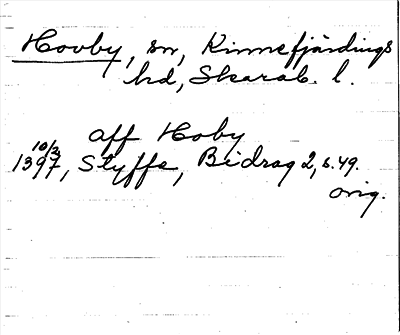 Hovby, sn, Kinnefjärdings
hd, Skarab. l.
aff Hoby
10/2
1397, Styffe, Bidrag 2, s. 49.
orig.